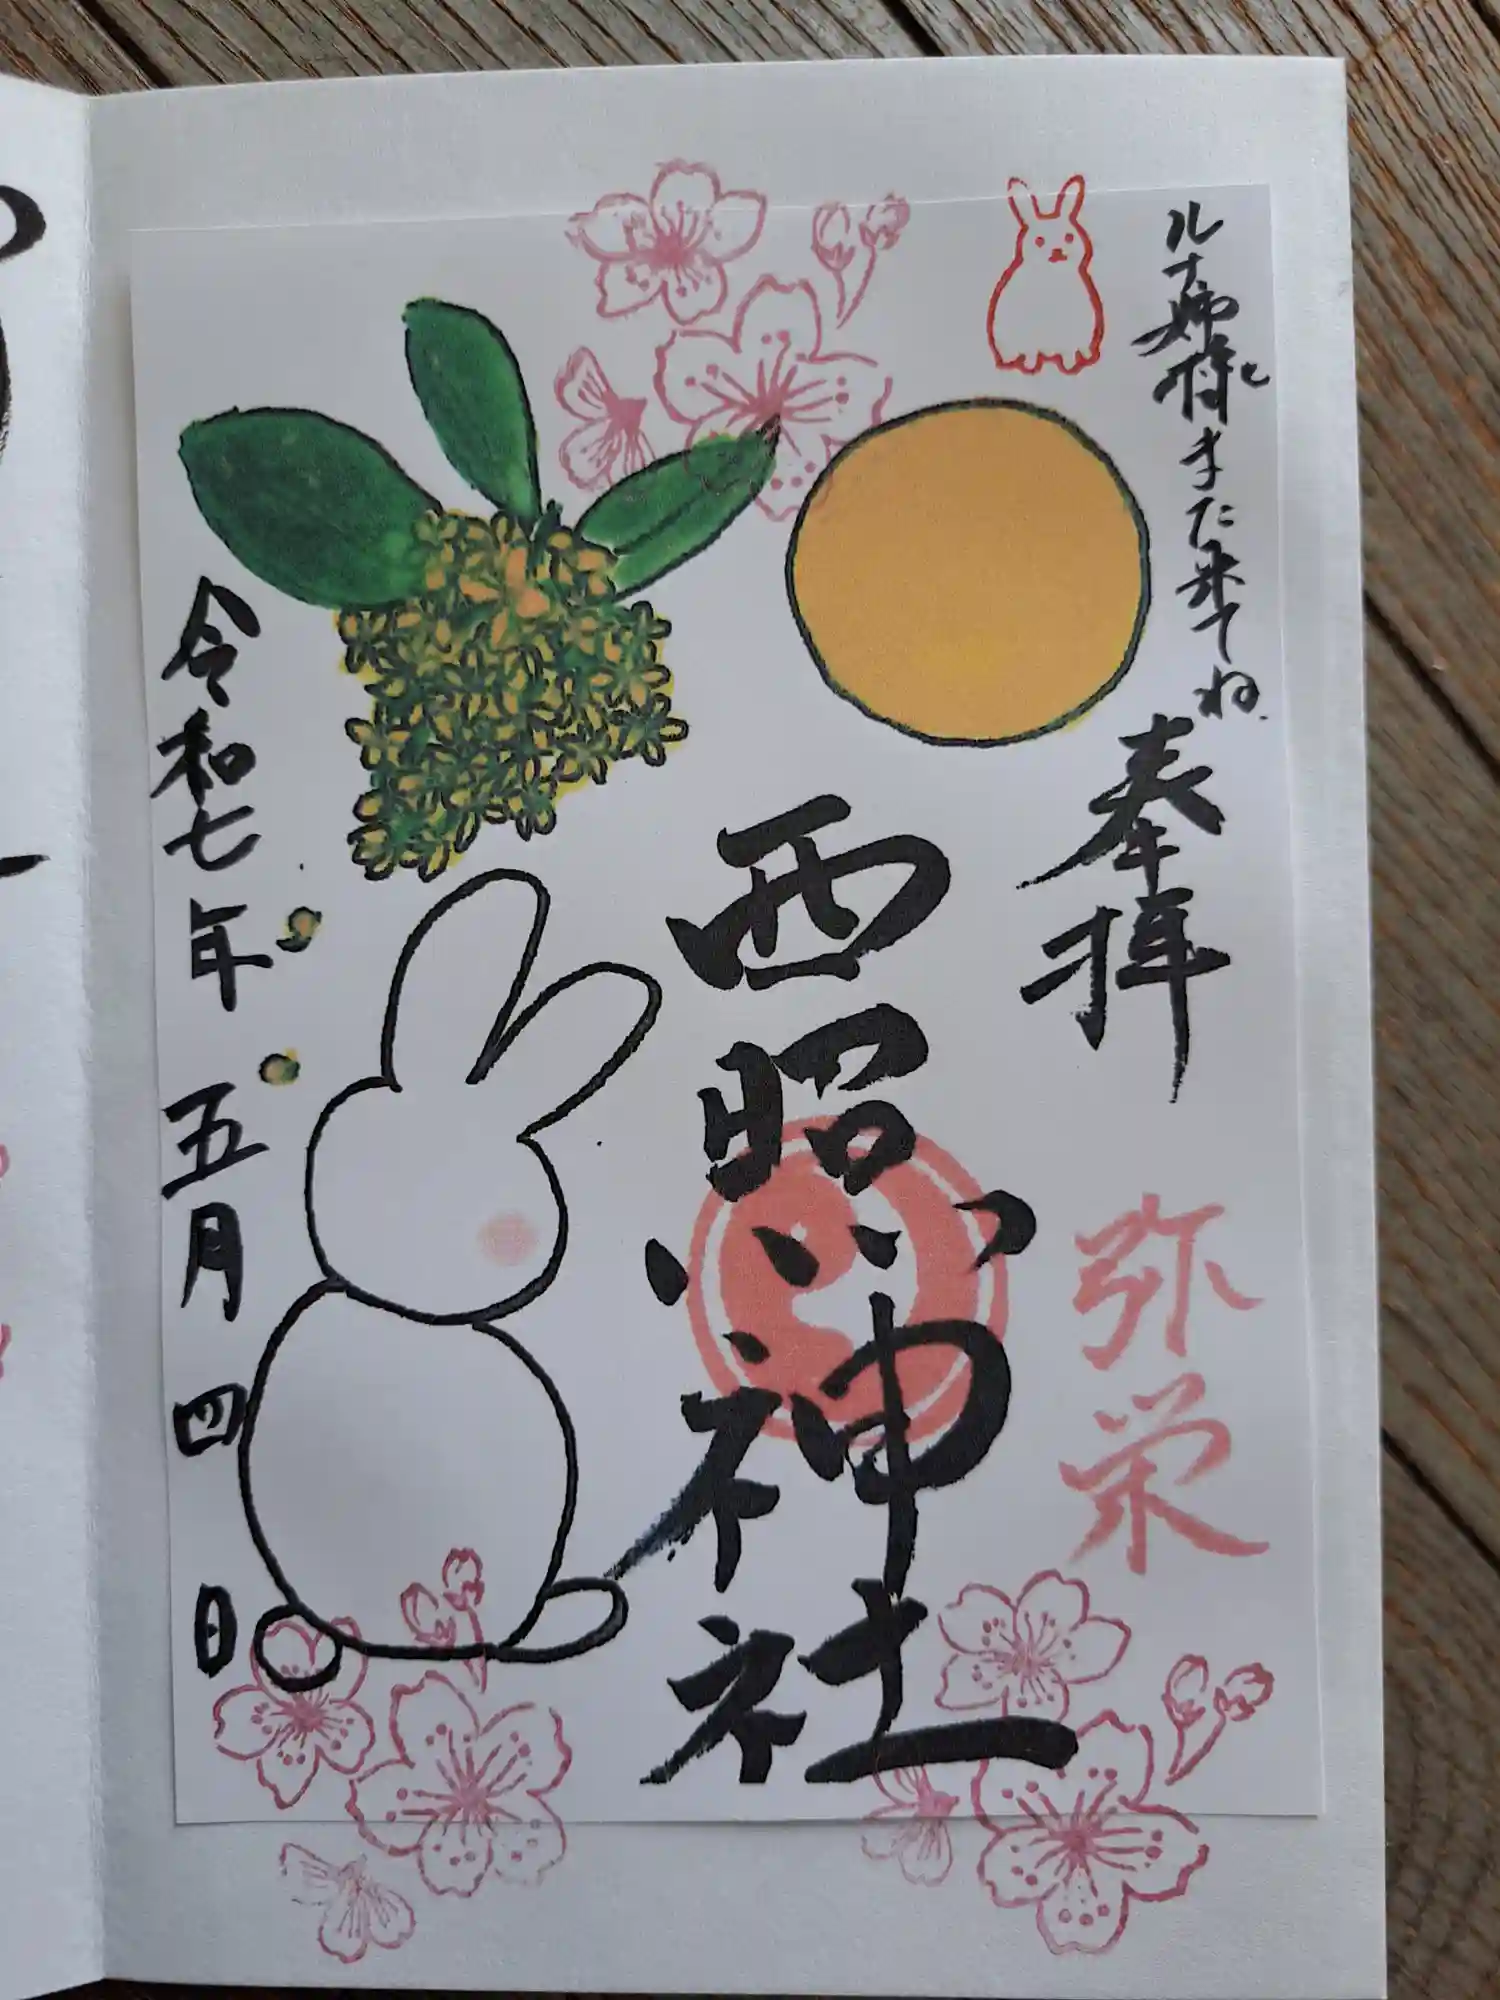 ルナ姉様とまた来てね
奉拝
弥栄
西照神社
令和七年五月四日